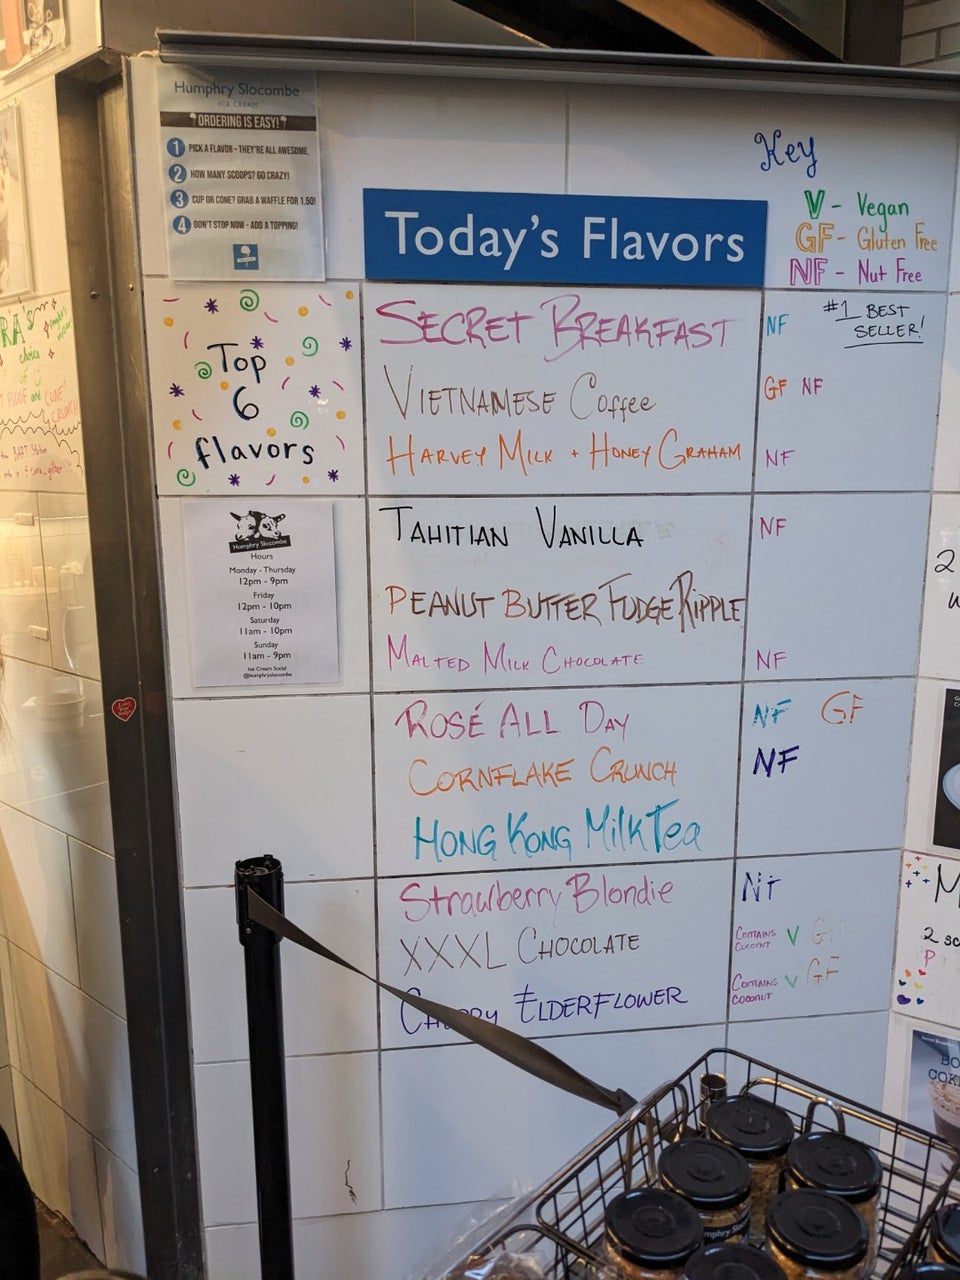 Humphry Slocombe
ICE CREAM
ORDERING IS EASY!
1 PICK A FLAVOR - THEY'RE ALL AWESOME.
2 HOW MANY SCOOPS? GO CRAZY!
3 CUP OR CONE? GRAB A WAFFLE FOR 1.50!
4 DON'T STOP NOW - ADD A TOPPING!
Key
V - Vegan
GF - Gluten Free
NF - Nut Free
Today's Flavors
Top
6
flavors
SECRET BREAKFAST NF #1 BEST
SELLER!
VIETNAMESE Coffee GF NF
HARVEY MILK + HONEY GRAHAM NF
TAHITIAN VANILLA NF
PEANUT BUTTER FUDGE RIPPLE
MALTED MILK CHOCOLATE NF
ROSÉ ALL DAY NF GF
CORNFLAKE CRUNCH NF
HONG KONG MilkTea
Strawberry Blondie NF
XXXL CHOCOLATE CONTAINS COCONUT V GF
ELDERFLOWER CONTAINS COCONUT V GF
Humphry Slocombe
Hours
Monday - Thursday
12pm - 9pm
Friday
12pm - 10pm
Saturday
11am - 10pm
Sunday
11am - 9pm
Ice Cream Social
@humphryslocombe
RA's
choice
CONE
CRUNCH
BART Station
2
M
2 sc
P
BO
COK